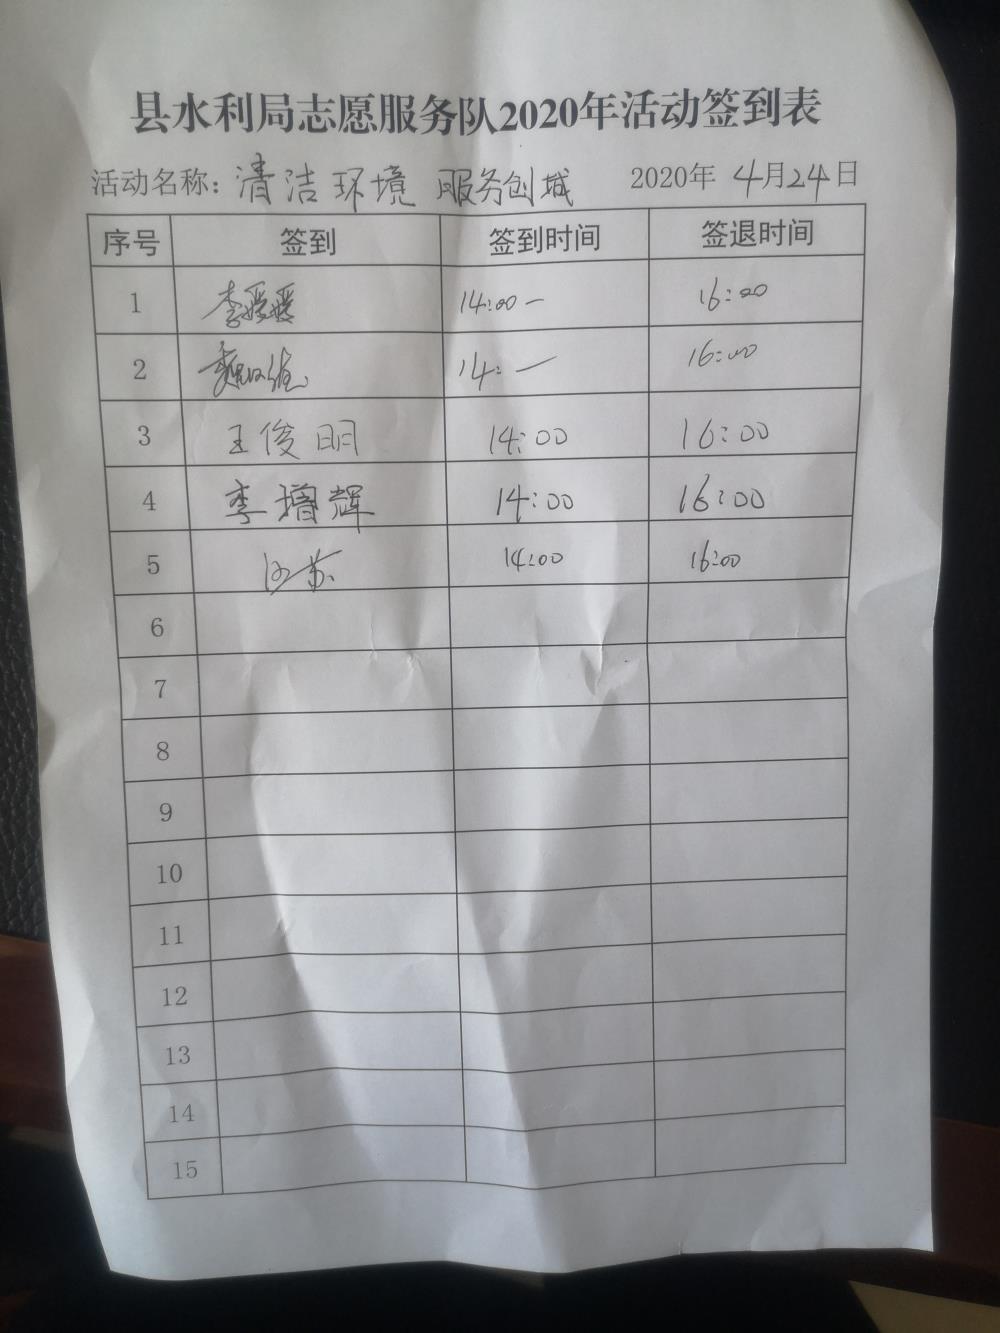 县水利局志愿服务队2020年活动签到表
活动名称：清洁环境 服务创城 2020年4月24日
序号 签到 签到时间 签退时间
1 李媛媛 14:00 — 16:00
2 14: — 16:00
3 王俊明 14:00 16:00
4 李增辉 14:00 16:00
5 14:00 16:00
6
7
8
9
10
11
12
13
14
15